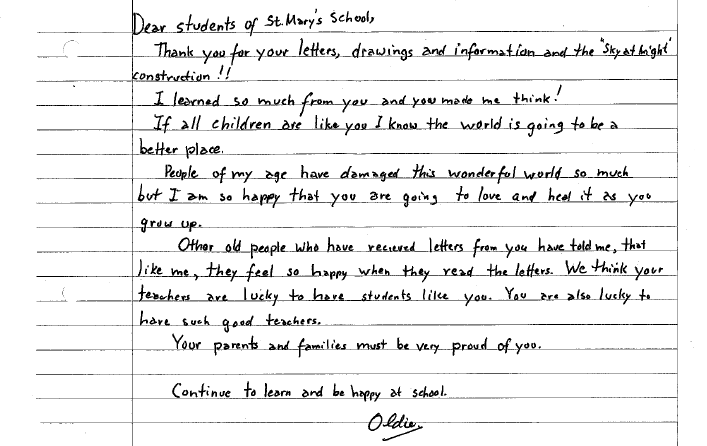 Dear students of St. Mary's School,
Thank you for your letters, drawings and information and the "Sky at night"
construction!!
I learned so much from you and you made me think!
If all children are like you I know the world is going to be a
better place.
People of my age have damaged this wonderful world so much
but I am so happy that you are going to love and heal it as you
grow up.
Other old people who have recieved letters from you have told me, that
like me, they feel so happy when they read the letters. We think your
teachers are lucky to have students like you. You are also lucky to
have such good teachers.
Your parents and families must be very proud of you.
Continue to learn and be happy at school.
Oldie.